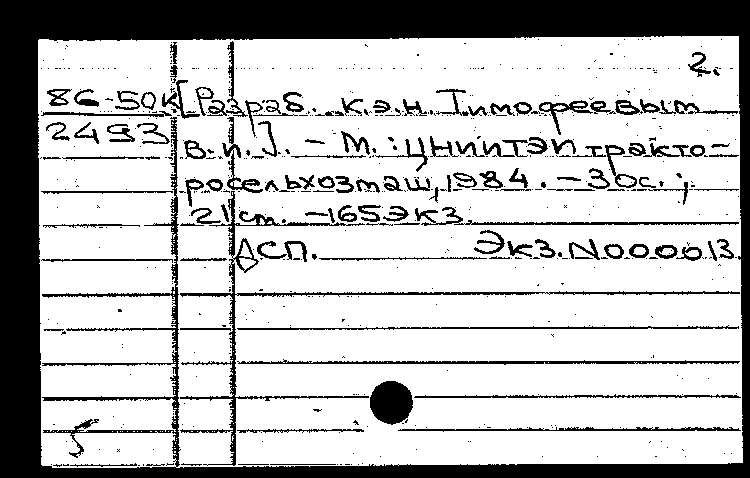 2.
86-50к [Разраб. к.э.н. Тимофеевым
2493 В.П.]. - М. : ЦНИИТЭИ тракто-
росельхозмаш, 1984. - 30с. ;
21 см. - 165 экз.
ДСП. Экз. N000013
5